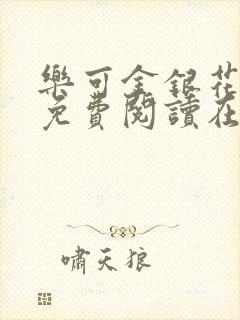 樂可金銀花
免費閱讀在
嘯天狼